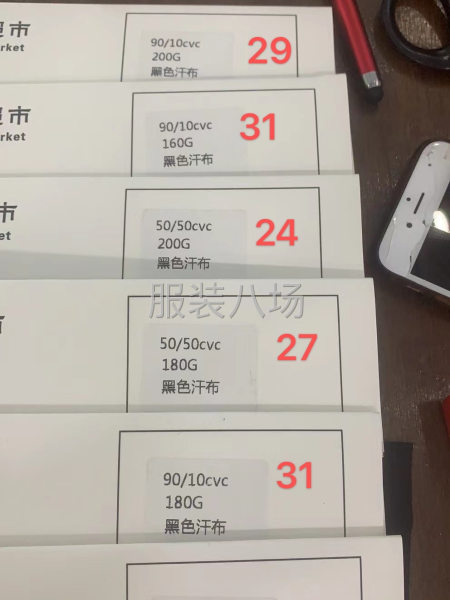 市
rket
90/10cvc
200G
黑色汗布
29
市
rket
90/10cvc
160G
黑色汗布
31
市
et
50/50cvc
200G
黑色汗布
24
服装八场
50/50cvc
180G
黑色汗布
27
90/10cvc
180G
黑色汗布
31